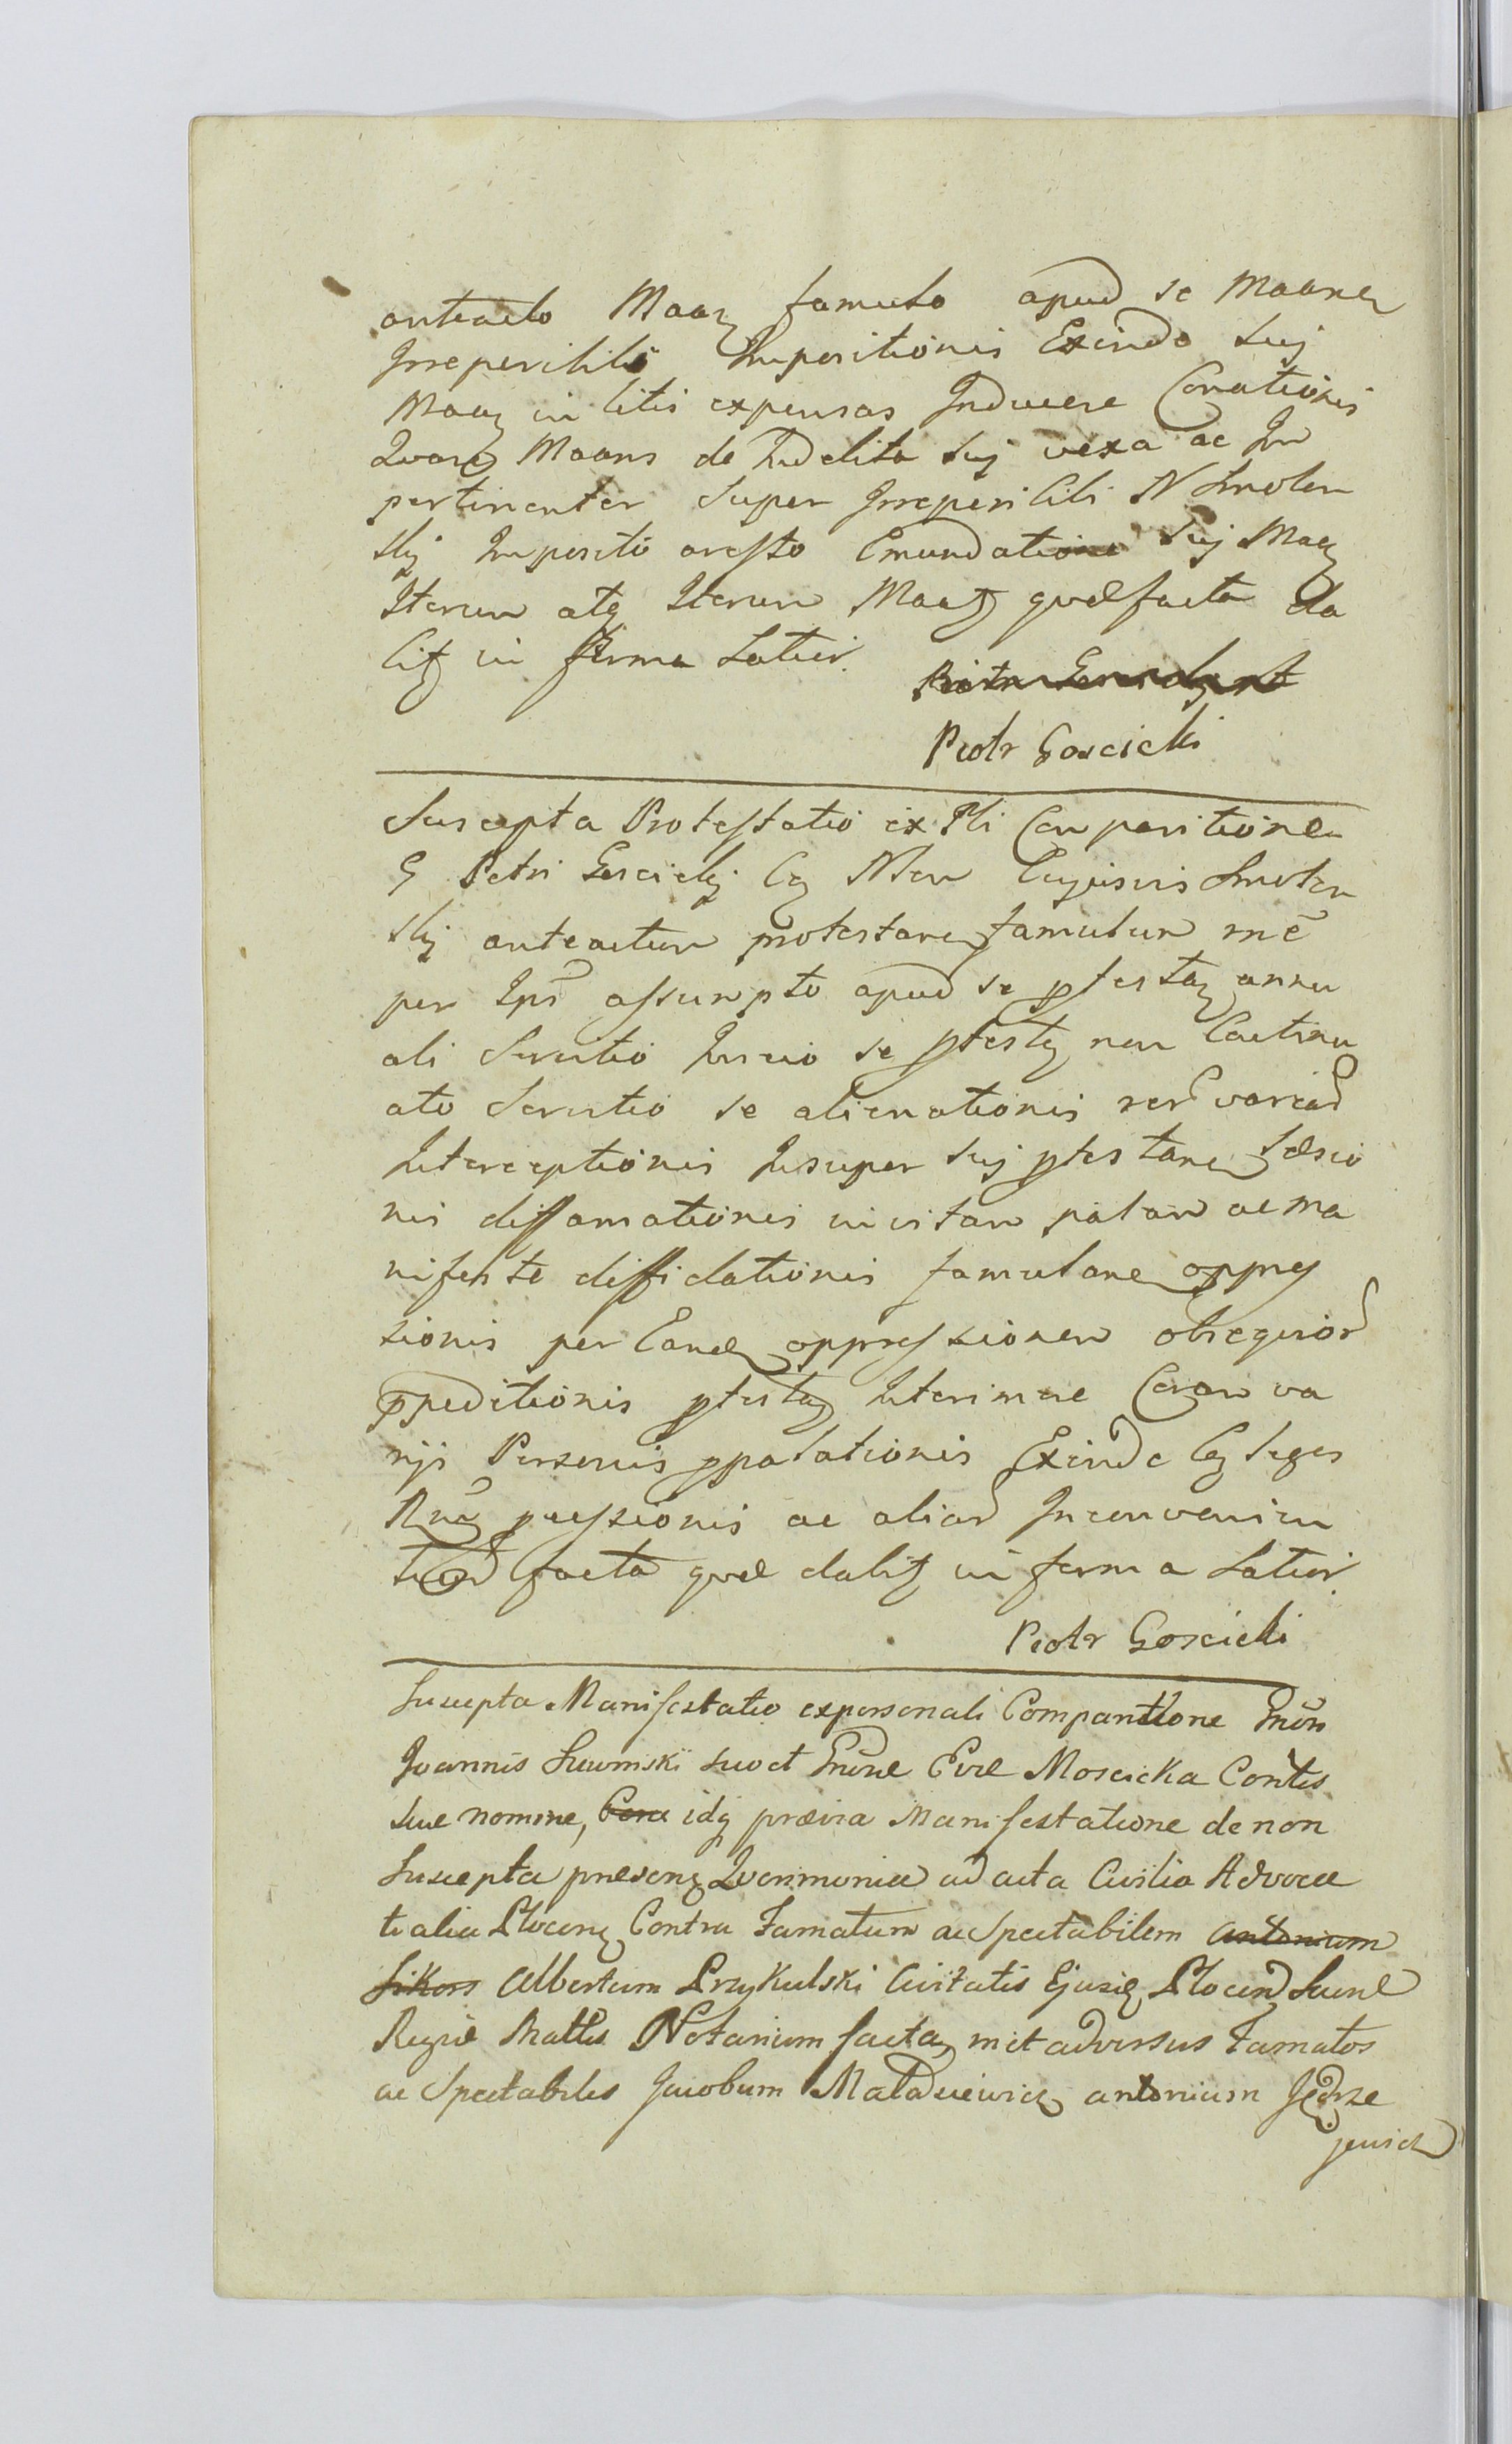 anteacto Maaz famulo apud se Maane
Irreperibili Impositionis Exinde Suj
Maaz in litis expensas Inducere Conationis
Quare Maans de Indelita Suj vexa ac Im
pertinenter Super Irreperibili N Smolen
skj Imposito aresto Emundatione Suj Maaz
Iterum atq Iterum Maatz quæ facta da
litz in forma Latiori
Piotr Goscicki
Suscepta Protestatio ex Pli Comparitione
G Petri Goscickj Cq Nlem Smolen
skj anteactum protestane famulum
per Ips assumpto apud se ptestaz annu
ali Servitio Inscio se ptestz non Continu
ato Servitio se alienationis rerd variard
Interceptionis Insuper Suj ptestane Læsio
nis diffamationis in vitam palam ac ma
nifeste diffidationis famulane oppres
sionis per Eande oppressionem obsequiord
ppeditionis ptestaz Interimere Coram va
rijs Personis ppalationis Exinde Cq leges
Rnq pressionis ac aliard Inconvenien
tiard facta quæ dabitz in forma Latiori
Piotr Goscicki
Suscepta Manifestatio ex personali Comparitione Gnron
Joannis Suromski suo et Gnrosæ Evæ Moscicka Contis
suæ nomine, idq prævia Manifestatione de non
Suscepta præsenz Querimonia ad acta Civilia Advoca
tialia Plocenz Contra Famatum ac Spectabilem Antonium
Sikors Albertum Przykulski Civitatis Ejusdz Plocend Sacræ
Regiæ Mattis Notarium facta, met adversus Famatos
ac Spectabiles Jacobum Matusiewicz antonium Jędrze
jewicz